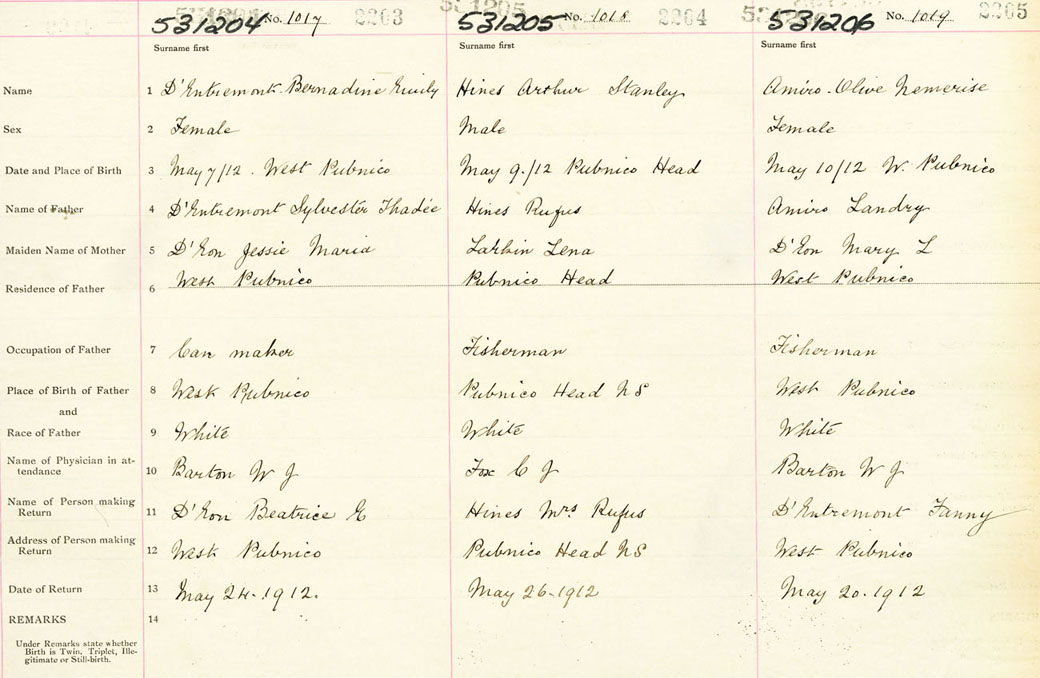 531204 No. 1017 2203 531205 No. 1018 2204 531206 No. 1019 2205
Surname first Surname first Surname first
Name 1 D'Entremont Bernadine Emily Hines Arthur Stanley Amiro Olive Nemerise
Sex 2 Female Male Female
Date and Place of Birth 3 May 7/12. West Pubnico May 9./12 Pubnico Head May 10/12 W. Pubnico
Name of Father 4 D'Entremont Sylvester Thadée Hines Rufus Amiro Landry
Maiden Name of Mother 5 D'Eon Jessie Maria Larkin Lena D'Eon Mary L
Residence of Father 6 West Pubnico Pubnico Head West Pubnico
Occupation of Father 7 Can maker Fisherman Fisherman
Place of Birth of Father 8 West Pubnico Pubnico Head NS West Pubnico
and
Race of Father 9 White White White
Name of Physician in at-
tendance 10 Barton W J Fox C J Barton W J
Name of Person making
Return 11 D'Eon Beatrice E Hines Mrs Rufus D'Entremont Fanny
Address of Person making
Return 12 West Pubnico Pubnico Head NS West Pubnico
Date of Return 13 May 24. 1912. May 26-1912 May 20. 1912
REMARKS 14
Under Remarks state whether
Birth is Twin, Triplet, Ille-
gitimate or Still-birth.